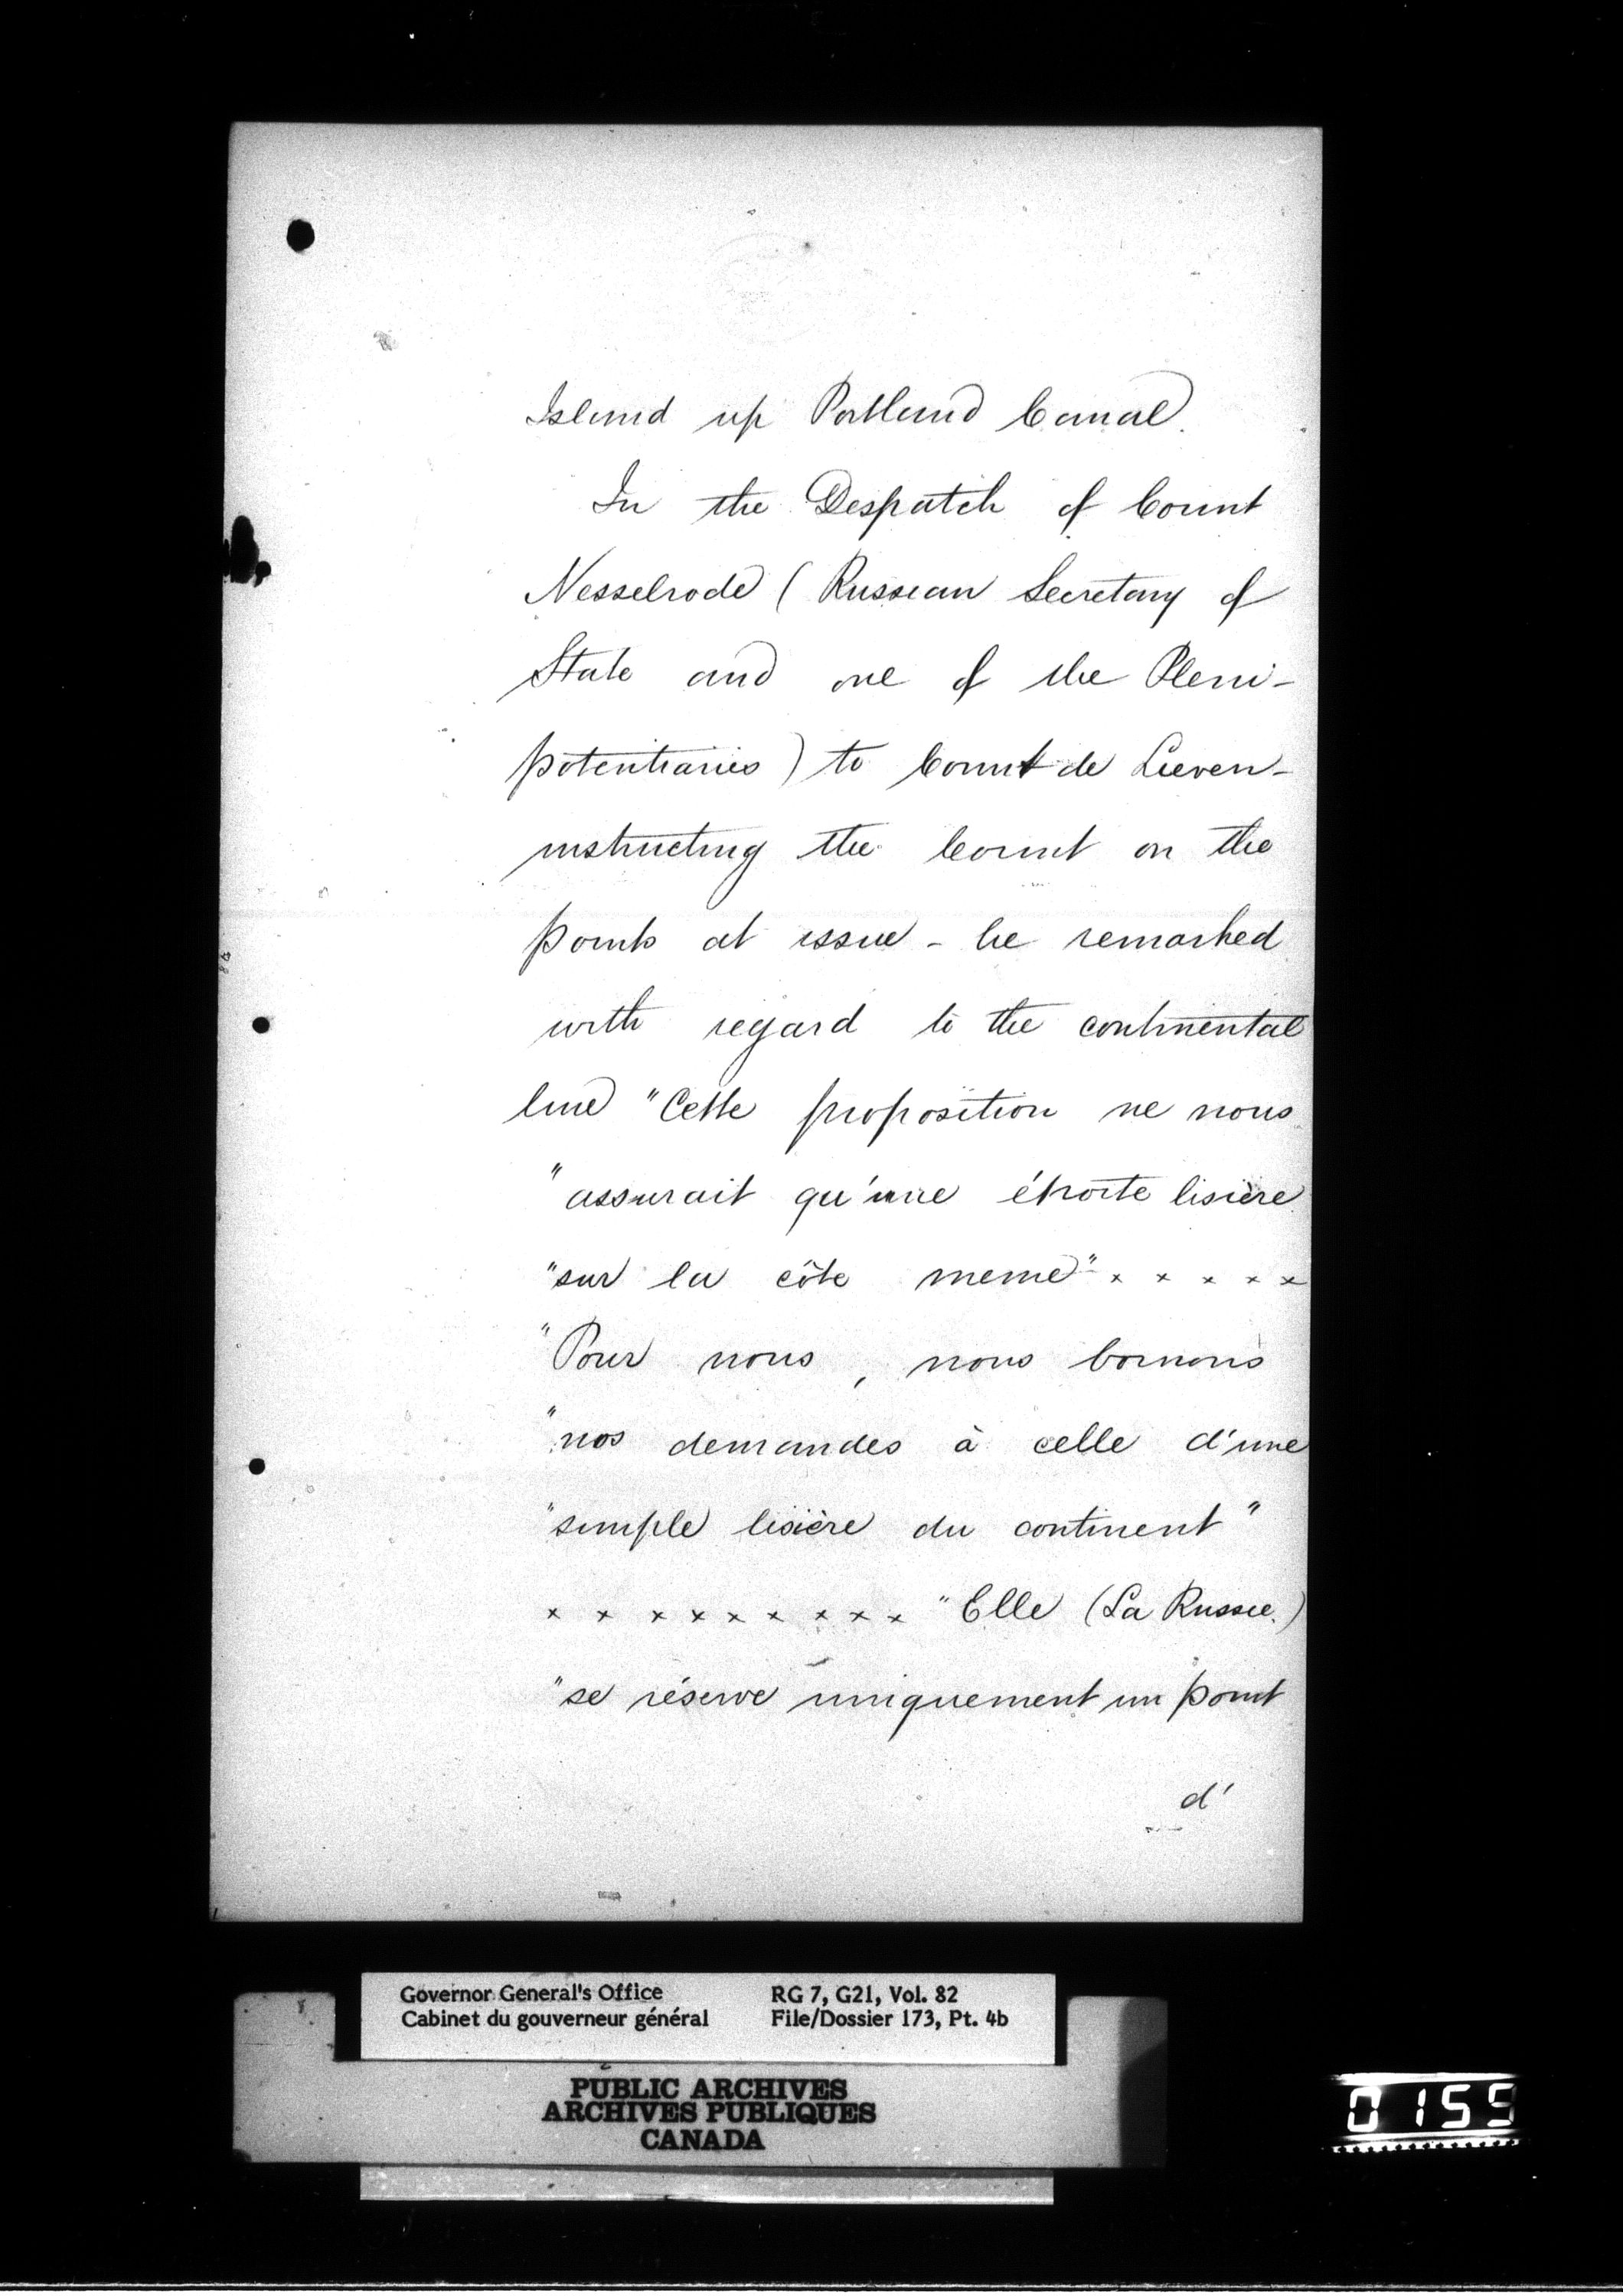 Island up Portland Canal.
In the Despatch of Count
Nesselrode (Russian Secretary of
State and one of the Pleni-
potentiaries) to Count de Lieven-
instructing the Count on the
points at issue - he remarked
with regard to the continental
line "Cette proposition ne nous
"assurait qu'une étroite lisière
"sur la côte meme" x x x x x
"Pour nous, nous bornons
"nos demandes à celle d'une
"simple lisière du continent"
x x x x x x x x x "Elle (La Russie.)
"se réserve uniquement un point
d'
Governor General's Office
Cabinet du gouverneur général
RG 7, G21, Vol. 82
File/Dossier 173, Pt. 4b
PUBLIC ARCHIVES
ARCHIVES PUBLIQUES
CANADA
0155